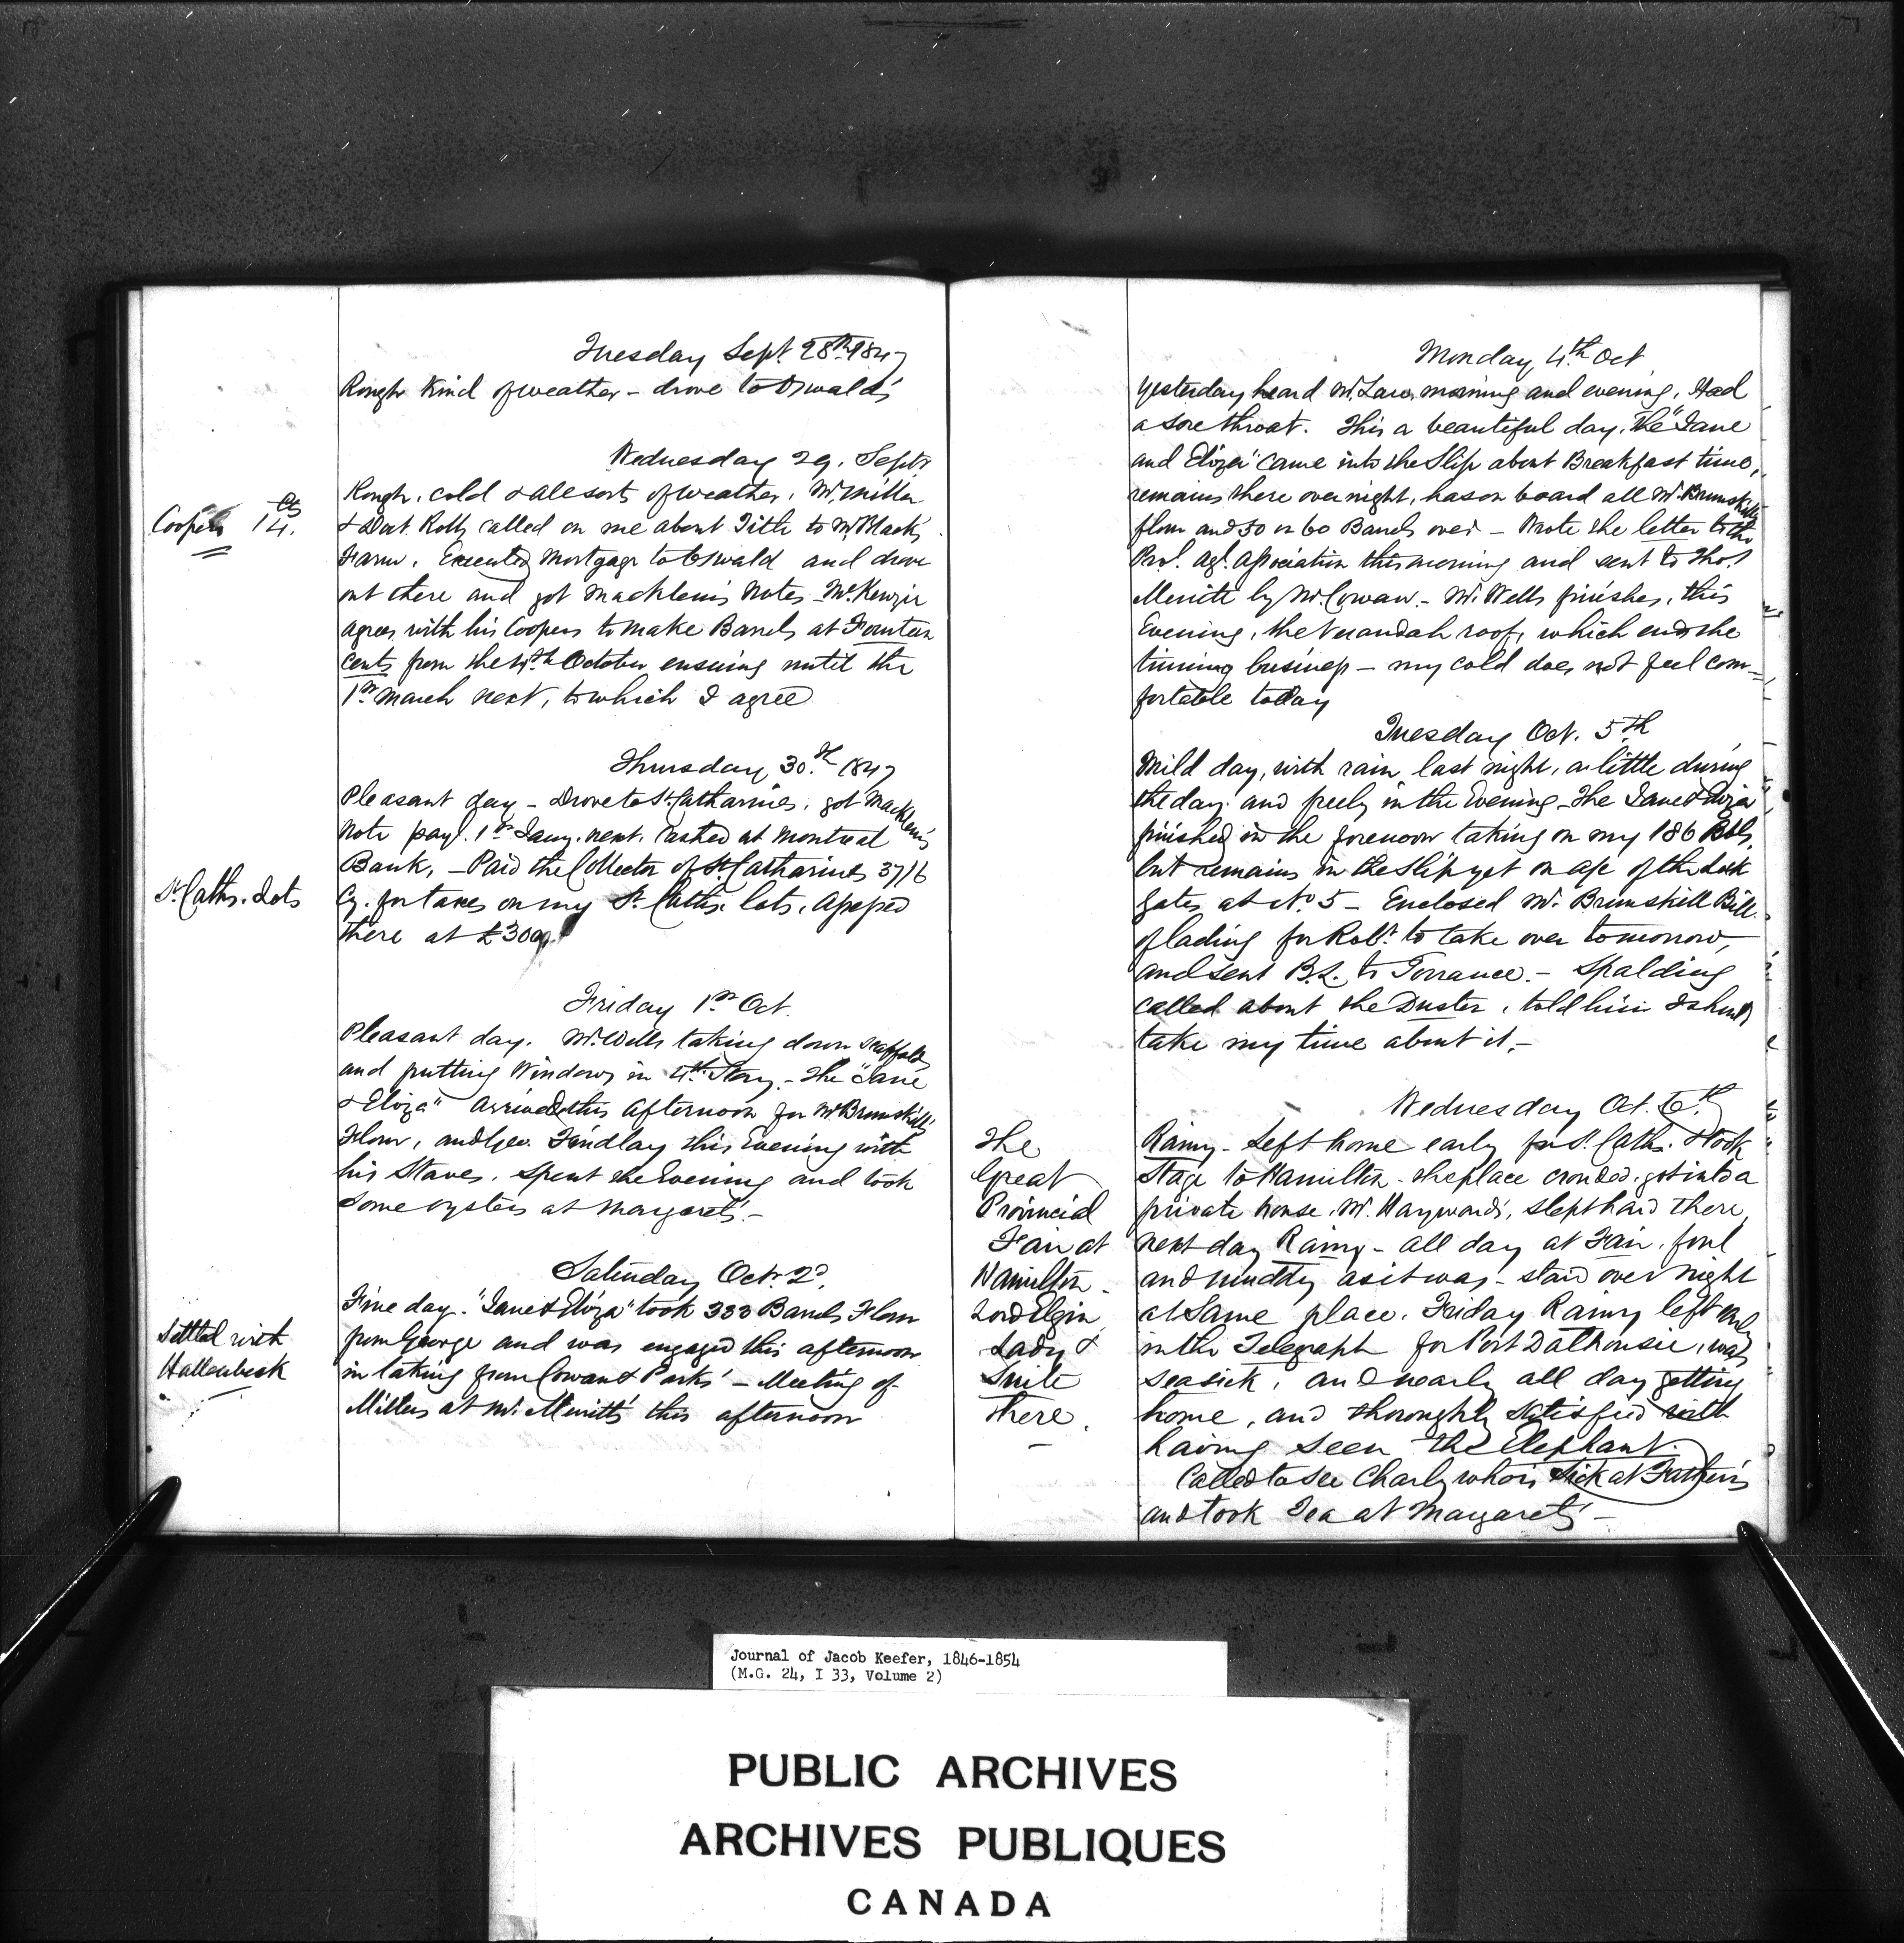 Tuesday Sept 28th 1847
Rough kind of weather - drove to Oswald's
Wednesday 29. Septr
Coopers 14 cts.
Rough, cold & all sorts of weather. Mr. Miller
& Doct. Rolls called on me about Title to Mr. Black's
Farm. Executed Mortgage to Oswald and drove
out there and got Macklem's Notes - McKenzie
agrees with his Coopers to make Barrels at Fourteen
cents from the 4th October ensuing until the
1st March next, to which I agree
Thursday 30.th 1847
Pleasant day - Drove to St. Catharines. got Macklem's
Note payl. 1st Jany. next. Cashed at Montreal
Bank, - Paid the Collector of St. Catharines 37/6
St. Caths. Lots
Cy. for taxes on my St. Caths. lots. Assessed
there at £300
Friday 1st Oct.
Pleasant day. Mr. Wells taking down scaffolds
and putting Windows in 4th Story. - The "Jane
& Eliza" Arrived this afternoon for Mr. Brunskill's
Flour, and Geo. Findlay this Evening with
his Staves. Spent the Evening and took
some oysters at Margaret's. -
Saturday Octr. 2d.
Fine day. "Jane & Eliza" took 333 Barrels Flour
Settled with
Hallenbeck
from George and was engaged this afternoon
in taking from Cowan & Parks' - Meeting of
Millers at Mr. Merritt's this afternoon
Monday 4th Oct
Yesterday heard Mr. Law, morning and evening. Had
a sore throat. This a beautiful day. The "Jane
and Eliza" came into the Slip about Breakfast time,
remains there over night, has on board all Mr. Brunskill's
flour and 50 or 60 Barrels over - Wrote the letter to the
Prol. Agl. Association this morning and sent to Thos.
Merritt by Mr. Cowan. - Mr. Wells finishes, this
Evening, the Verandah roof, which ends the
tinning business - my cold does not feel com=
fortable today
Tuesday Oct. 5th
Mild day, with rain last night, a little during
the day. and freely in the Evening - The Jane & Eliza
finished in the forenoon taking on my 186 Bbls,
but remains in the Slip yet on a/c of the Lock
Gates at No. 5 - Enclosed Mr. Brunskill Bill
of lading for Robt. to take over tomorrow,
and sent B.L. to Torrance. - Spalding
called about the Duster, told him I should
take my time about it. -
Wednesday Oct. 6th
The
Great
Provincial
Fair at
Hamilton -
Lord Elgin,
Lady &
Suite
there.
Rainy - Left home early for St. Caths. & took
Stage to Hamilton - the place crowded. got into a
private house, Mr. Hayward's, slept hard there,
next day Rainy - all day at Fair, foul
and muddy as it was - staid over night
at same place. Friday Rainy left early
in the Telegraph for Port Dalhousie, was
seasick, and nearly all day getting
home, and thoroughly satisfied with
having seen the Elephant.
Called to see Charly who is sick at Father's
and took Tea at Margaret's -
Journal of Jacob Keefer, 1846-1854
(M.G. 24, I 33, Volume 2)
PUBLIC ARCHIVES
ARCHIVES PUBLIQUES
CANADA